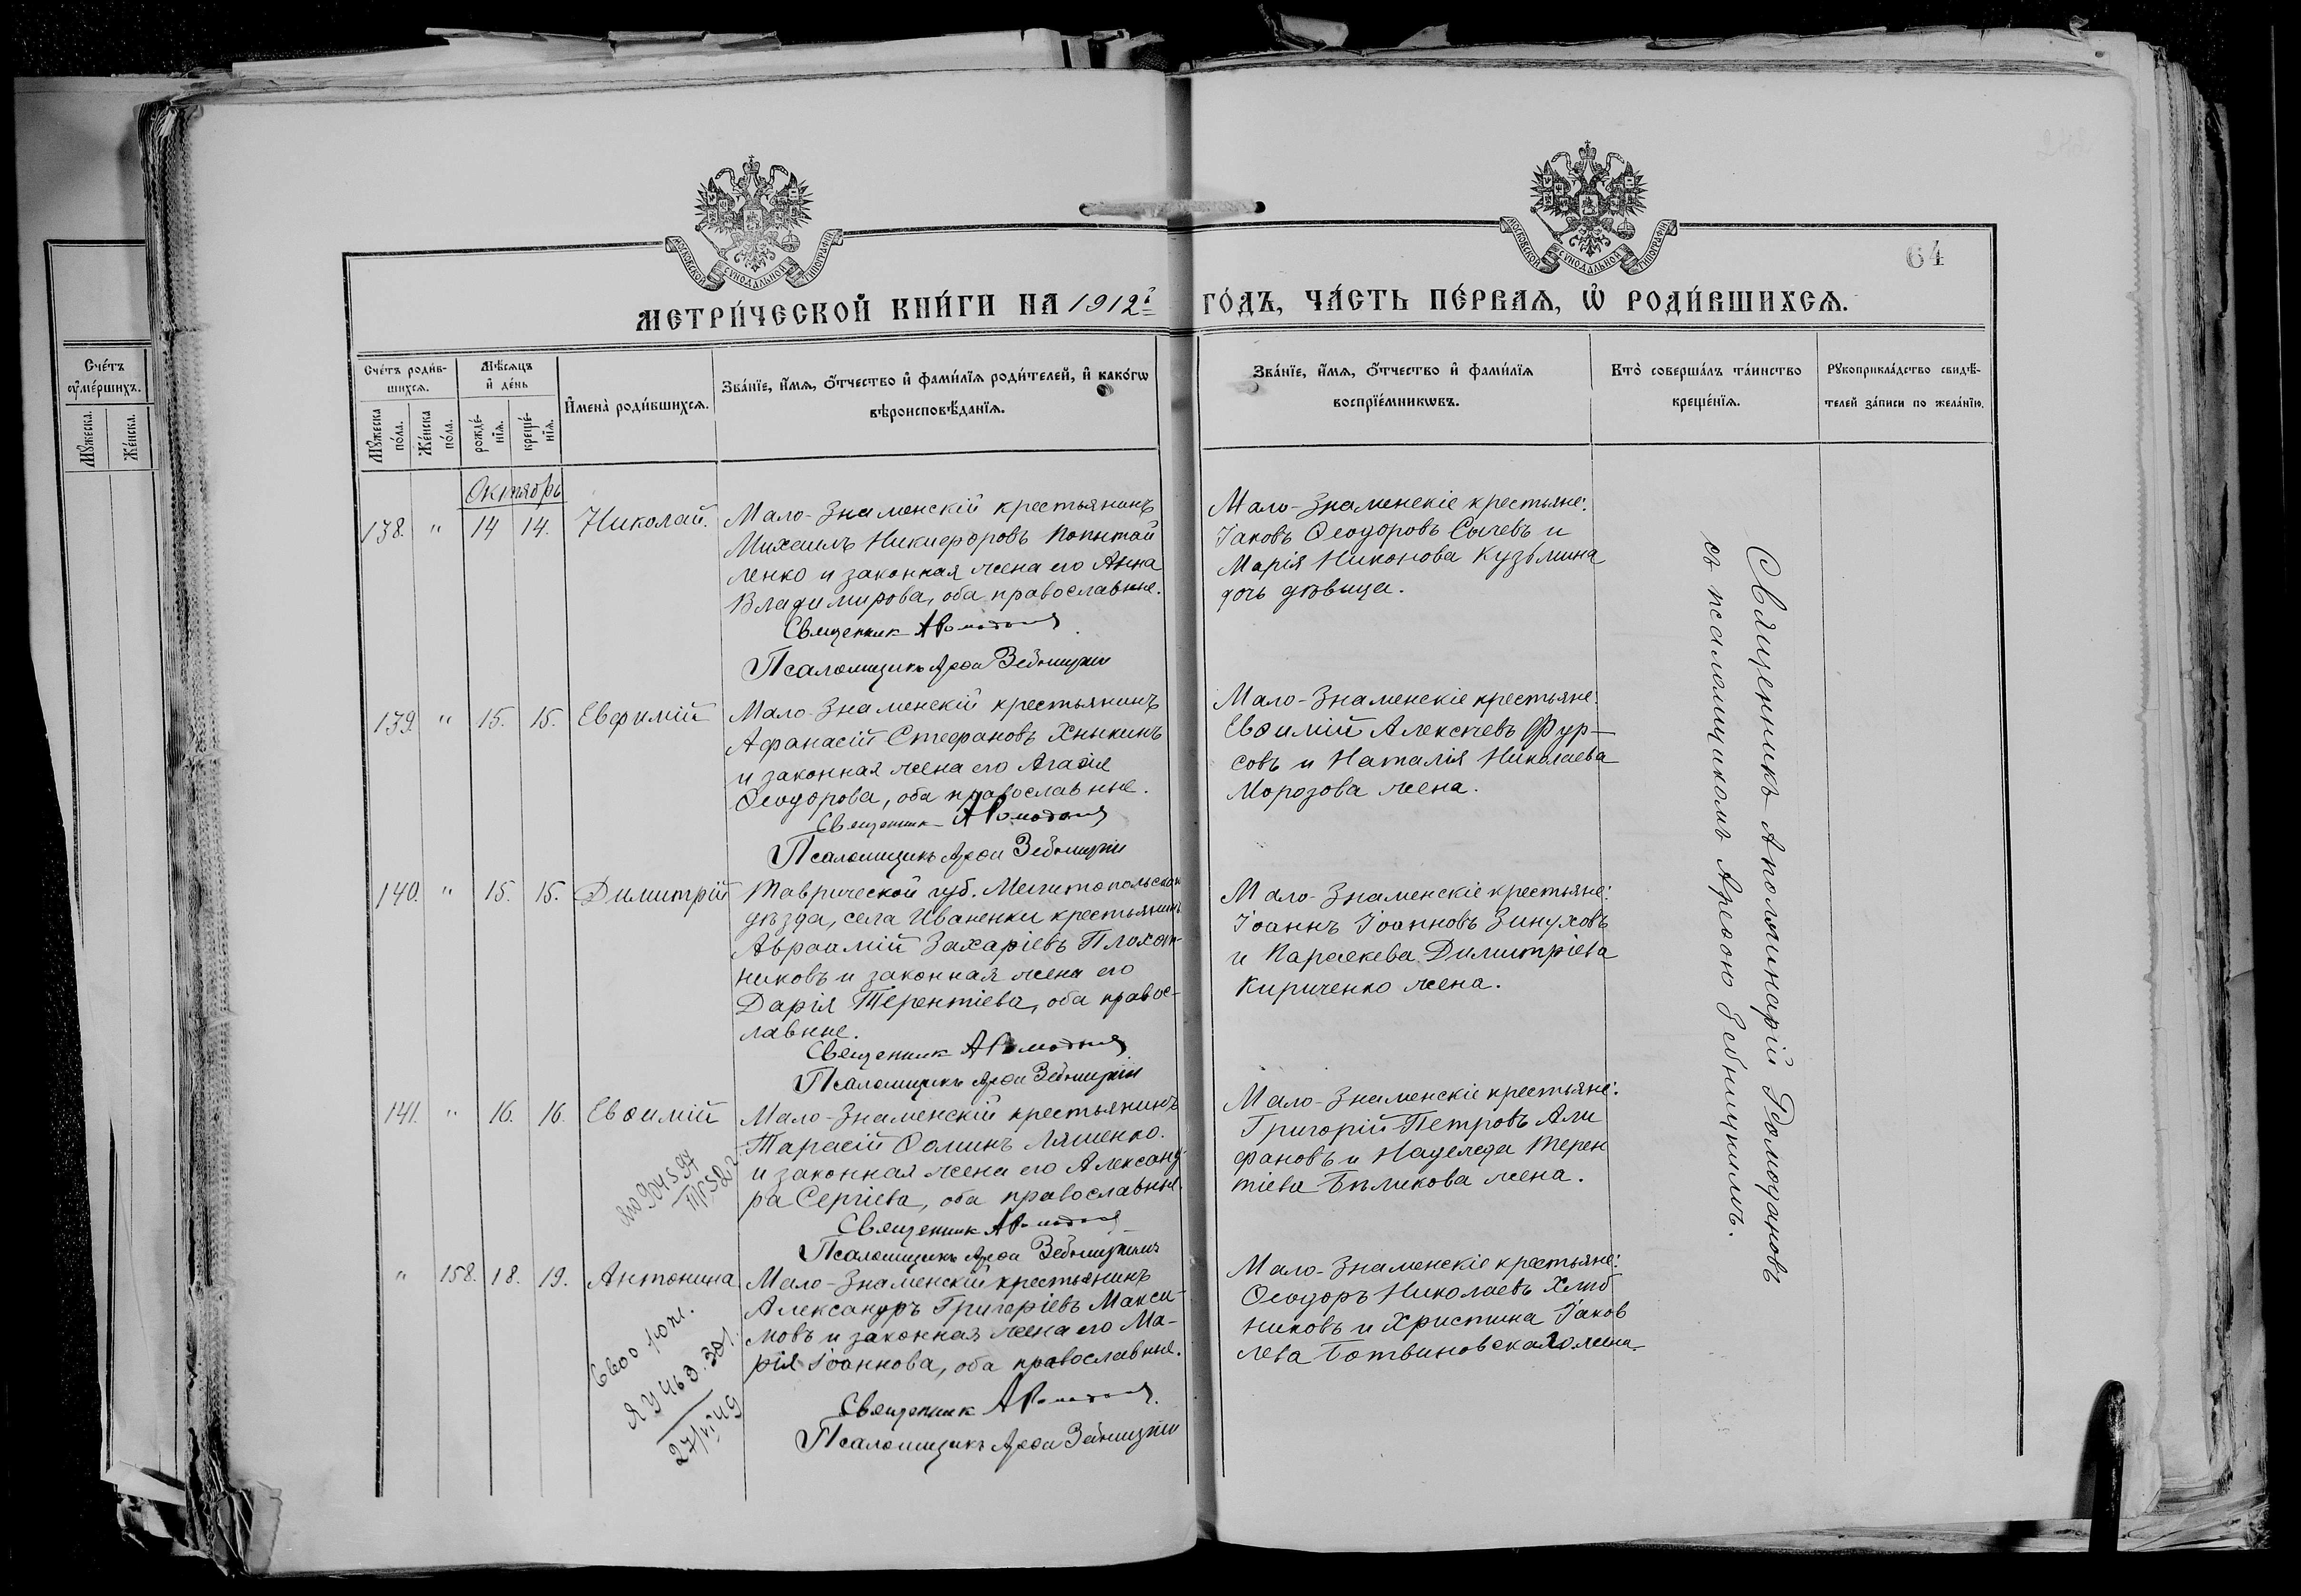 МОСКОВСКОЙ СѴНОДАЛЬНОЙ ТИПОГРАФІИ
МОСКОВСКОЙ СѴНОДАЛЬНОЙ ТИПОГРАФІИ
64
МЕТРИ́ЧЕСКОЙ КНИ́ГИ НА 1912й ГО́ДЪ, ЧА́СТЬ ПЕ́РВАѦ, Ѡ҆ РОДИ́ВШИХСѦ.
Сче́тъ ᲂу҆ме́ршихъ.
Мꙋ́жеска.
Же́нска.
Сче́тъ роди́вшихсѧ.
Мꙋ́жеска по́ла.
Же́нска по́ла.
Мѣ́сѧцъ и҆ де́нь
рожде́нїѧ.
креще́нїѧ.
И҆мена̀ роди́вшихсѧ.
Зва́нїе, и҆́мѧ, ѻ҆́тчество и҆ фами́лїѧ роди́телей, и҆ како́гѡ
вѣроисповѣ́данїѧ.
Зва́нїе, и҆́мѧ, ѻ҆́тчество и҆ фами́лїѧ
воспрїе́мникѡвъ.
Кто̀ соверша́лъ та́инство
креще́нїѧ.
Рꙋкоприкла́дство свидѣ́-
телей за́писи по жела́нїю.
Октябрь
138. " 14 14. Николай.
Мало-Знаменскій крестьянинъ
Михаилъ Никифоровъ Копытай
ленко и законная жена его Анна
Владимирова, оба православные.
Священник А Ромоданов
Псаломщикъ Арѳа Зебницкій
Мало-Знаменскіе крестьяне:
Іаковъ Ѳеодоровъ Сычевъ и
Марія Никонова Кузьмина
дочь дѣвица.
139. " 15. 15. Евфимій
Мало-Знаменскій крестьянинъ
Афанасій Стефановъ Хныкинъ
и законная жена его Агаѳія
Ѳеодорова, оба православные.
Священник А Ромоданов
Псаломщикъ Арѳа Зебницкій
Мало-Знаменскіе крестьяне:
Евѳимій Алексѣевъ Фур-
совъ и Наталія Николаева
Морозова жена.
140. " 15. 15. Димитрій
Таврической губ. Мелитопольскаго
уѣзда, села Иваненки крестьянинъ
Авраамій Захаріевъ Плохот-
никовъ и законная жена его
Дарія Терентіева, оба правос-
лавные.
Священник А Ромоданов
Псаломщикъ Арѳа Зебницкій
Мало-Знаменскіе крестьяне:
Іоаннъ Іоанновъ Зинуховъ
и Параскева Димитріева
Кириченко жена.
141. " 16. 16. Евѳимій
Мало-Знаменскій крестьянинъ
Тарасій Ѳоминъ Ляшенко.
и законная жена его Александ-
ра Сергіева, оба православные.
Священник А Ромоданов
Псаломщикъ Арѳа Зебницкій
Мало-Знаменскіе крестьяне:
Григорій Петровъ Али
фановъ и Надежда Терен
тіева Бѣликова жена.
" 158. 18. 19. Антонина
27/VI 49
Мало-Знаменскій крестьянинъ
Александръ Григоріевъ Макси-
мовъ и законная жена его Ма-
рія Іоаннова, оба православные.
Священник А Ромоданов
Псаломщикъ Арѳа Зебницкій
Мало-Знаменскіе крестьяне:
Ѳеодоръ Николаевъ Хлѣб
никовъ и Христина Іаков
лева Ботвиновская жена
Священникъ Аполлинарій Ромодановъ
съ псаломщикомъ Арѳою Зебницкимъ.